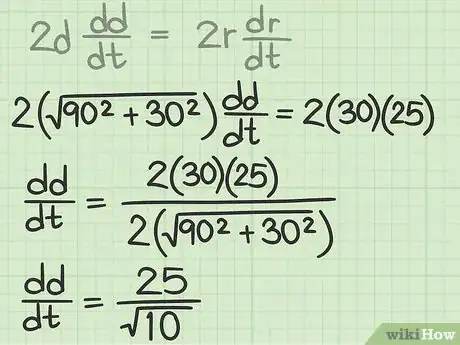 2d dd/dt = 2r dr/dt
2(√90² + 30²) dd/dt = 2(30)(25)
dd/dt = 2(30)(25) / 2(√90² + 30²)
dd/dt = 25 / √10
wikiHow